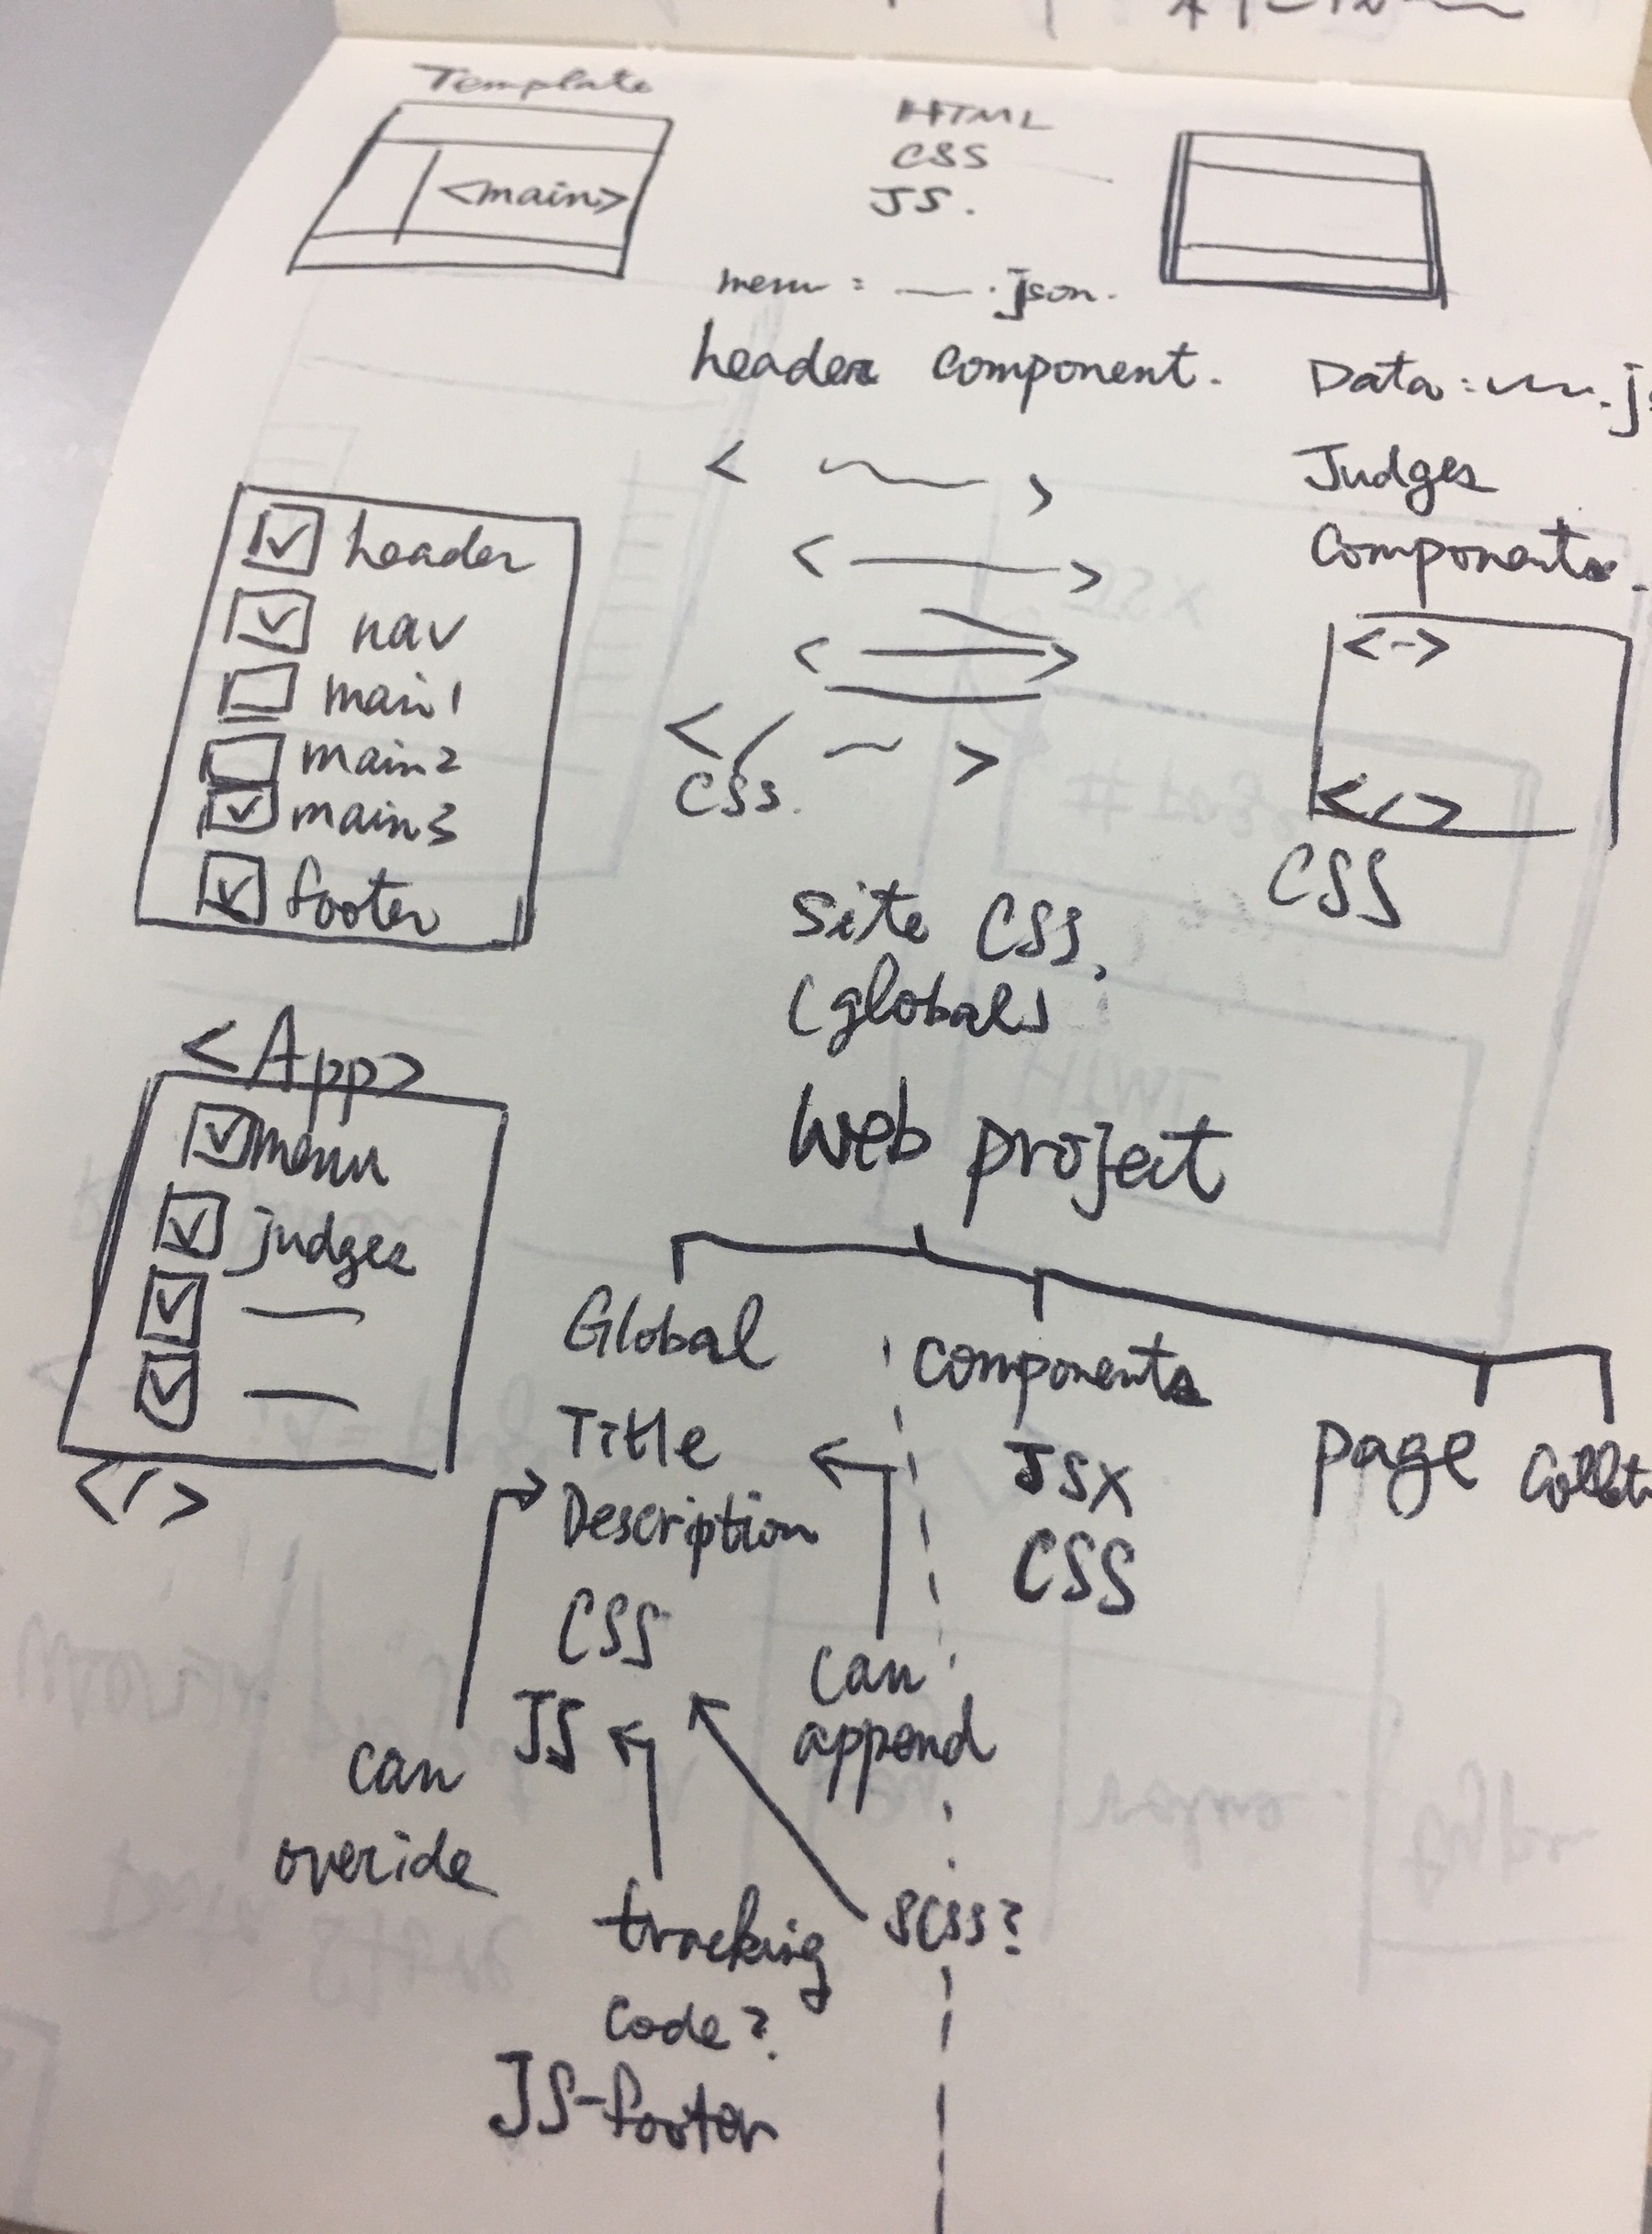 Template
<main>
HTML
CSS
JS.
menu : — .json.
header component.
< ~ >
< — >
< — >
</ ~ >
CSS.
Data : ~ .js
Judges
Components.
<->
</>
CSS
header
nav
main1
main2
main3
footer
Site CSS.
(global)
<App>
menu
judges
</>
Web project
Global
Title
Description
CSS
JS
components
JSX
CSS
page
can
append
can
override
SCSS?
tracking
code?
JS-footer